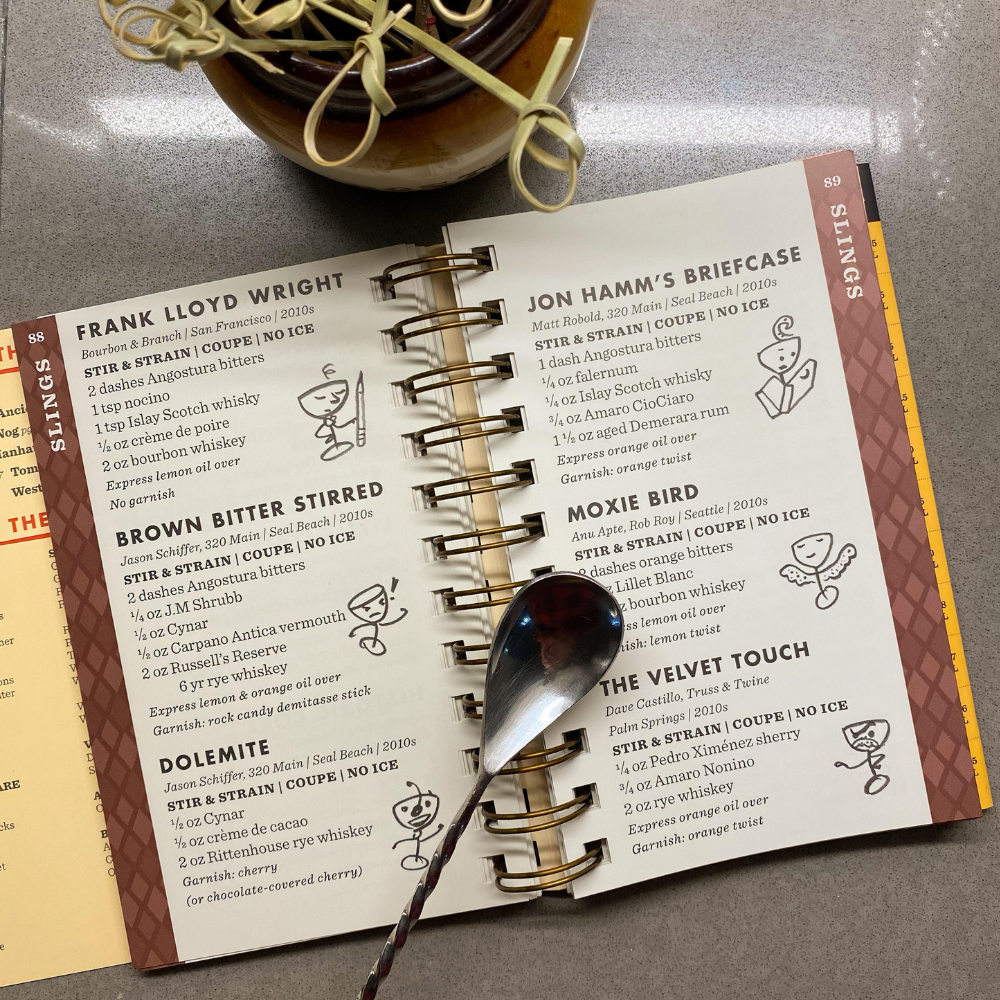 88
SLINGS
FRANK LLOYD WRIGHT
Bourbon & Branch | San Francisco | 2010s
STIR & STRAIN | COUPE | NO ICE
2 dashes Angostura bitters
1 tsp nocino
1 tsp Islay Scotch whisky
½ oz crème de poire
2 oz bourbon whiskey
Express lemon oil over
No garnish
BROWN BITTER STIRRED
Jason Schiffer, 320 Main | Seal Beach | 2010s
STIR & STRAIN | COUPE | NO ICE
2 dashes Angostura bitters
¼ oz J.M Shrubb
½ oz Cynar
½ oz Carpano Antica vermouth
2 oz Russell's Reserve
6 yr rye whiskey
Express lemon & orange oil over
Garnish: rock candy demitasse stick
DOLEMITE
Jason Schiffer, 320 Main | Seal Beach | 2010s
STIR & STRAIN | COUPE | NO ICE
½ oz Cynar
½ oz crème de cacao
2 oz Rittenhouse rye whiskey
Garnish: cherry
(or chocolate-covered cherry)
89
SLINGS
JON HAMM'S BRIEFCASE
Matt Robold, 320 Main | Seal Beach | 2010s
STIR & STRAIN | COUPE | NO ICE
1 dash Angostura bitters
¼ oz falernum
¼ oz Islay Scotch whisky
¾ oz Amaro CioCiaro
1 ½ oz aged Demerara rum
Express orange oil over
Garnish: orange twist
MOXIE BIRD
Anu Apte, Rob Roy | Seattle | 2010s
STIR & STRAIN | COUPE | NO ICE
dashes orange bitters
oz Lillet Blanc
oz bourbon whiskey
lemon oil over
lemon twist
THE VELVET TOUCH
Dave Castillo, Truss & Twine
Palm Springs | 2010s
STIR & STRAIN | COUPE | NO ICE
¼ oz Pedro Ximénez sherry
¾ oz Amaro Nonino
2 oz rye whiskey
Express orange oil over
Garnish: orange twist
THE